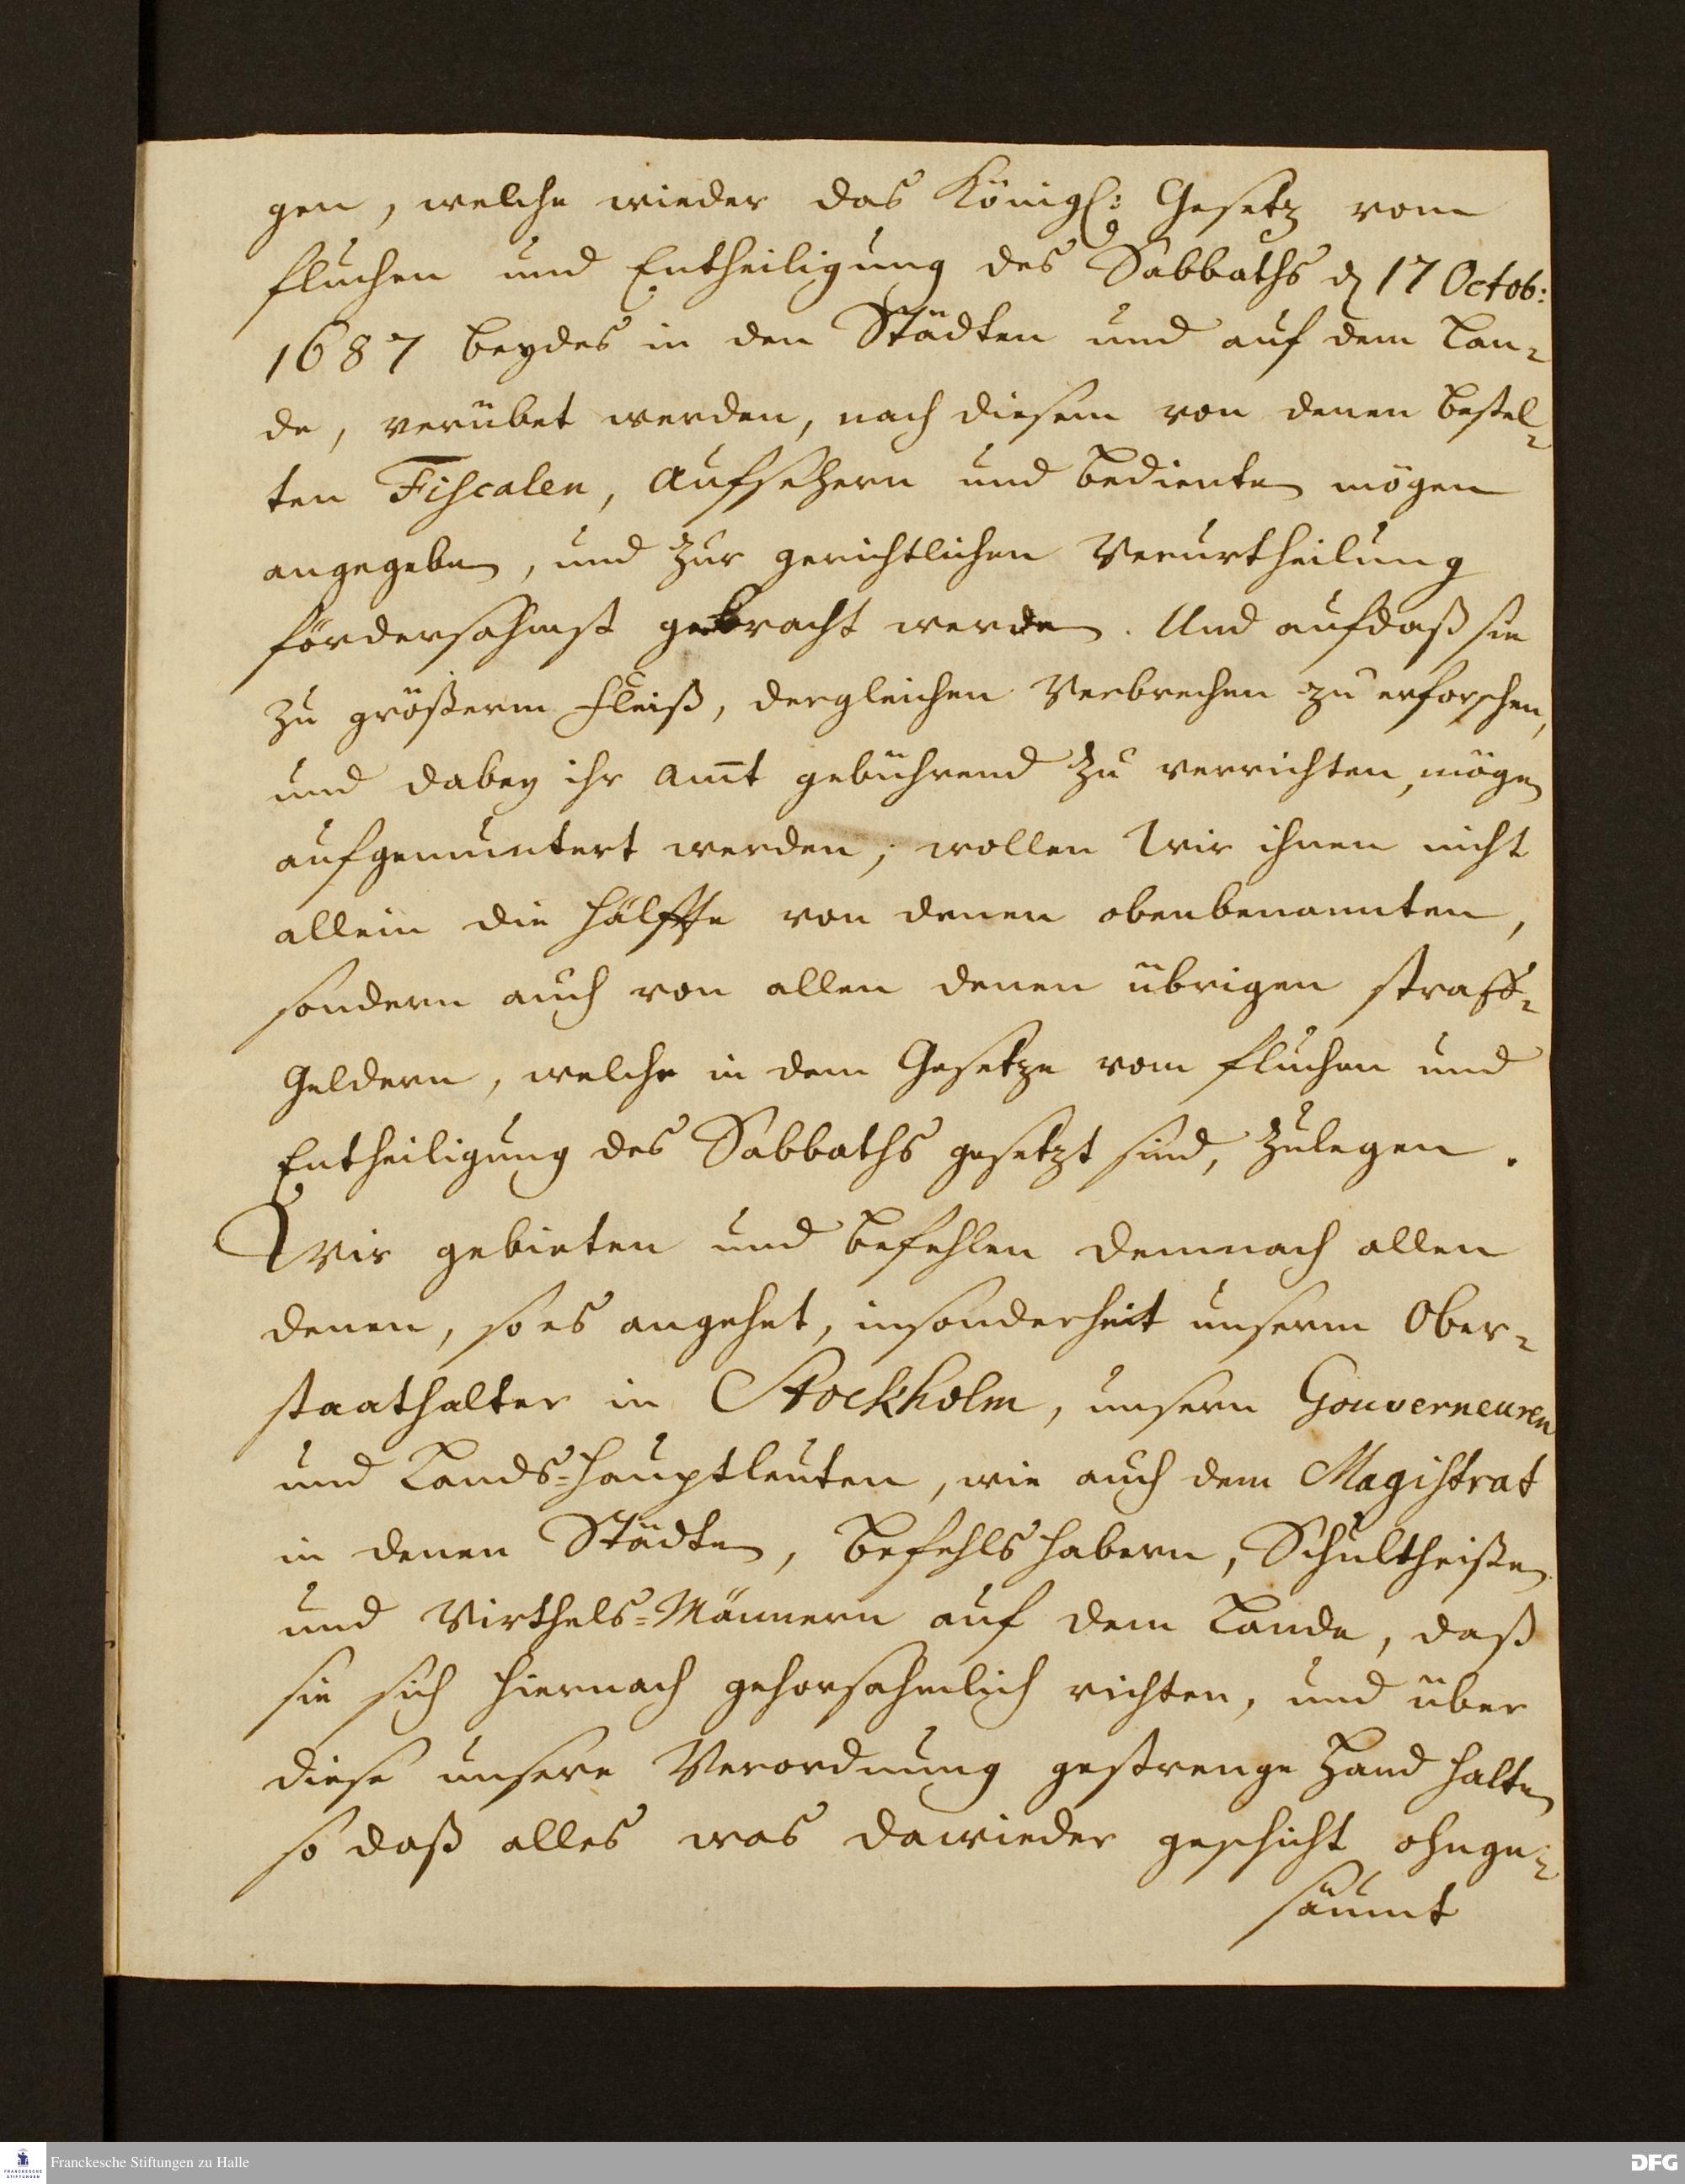 gen, welche wieder das Königl: Gesetz vom
fluchen und Entheiligung des Sabbaths d 17 Octob:
1687 beydes in den Städten und auf dem Lan-
de, verübet werden, nach diesem von denen bestel-
ten Fiscalen, Aufsehern und bedienten mögen
angegeben, und zur gerichtlichen Verurtheilung
fördersahmst gebracht werden. Und aufdaß sie
zu größerm Fleiß, dergleichen Verbrechen zu erforschen,
und dabey ihr Amt gebührend zu verrichten, mögen
aufgemuntert werden; wollen Wir ihnen nicht
allein die Hälffte von denen obenbenannten,
sondern auch von allen denen übrigen straff-
Geldern, welche in dem Gesetze vom fluchen und
Entheiligung des Sabbaths gesetzt sind, zulegen.
Wir gebieten und befehlen demnach allen
denen, so es angehet, insonderheit unserm Ober-
staathalter in Stockholm, unsern Gouverneuren
und Lands-Hauptleuten, wie auch dem Magistrat
in denen Städten, Befehlshabern, Schultheißen
und Virthels-Männern auf dem Lande, daß
sie sich hiernach gehorsahmlich richten, und über
diese unsere Verordnung gestrenge Hand halten
so daß alles was dawieder geschicht ohnge-
säumt
Franckesche Stiftungen zu Halle
FRANCKESCHE
STIFTUNGEN
DFG